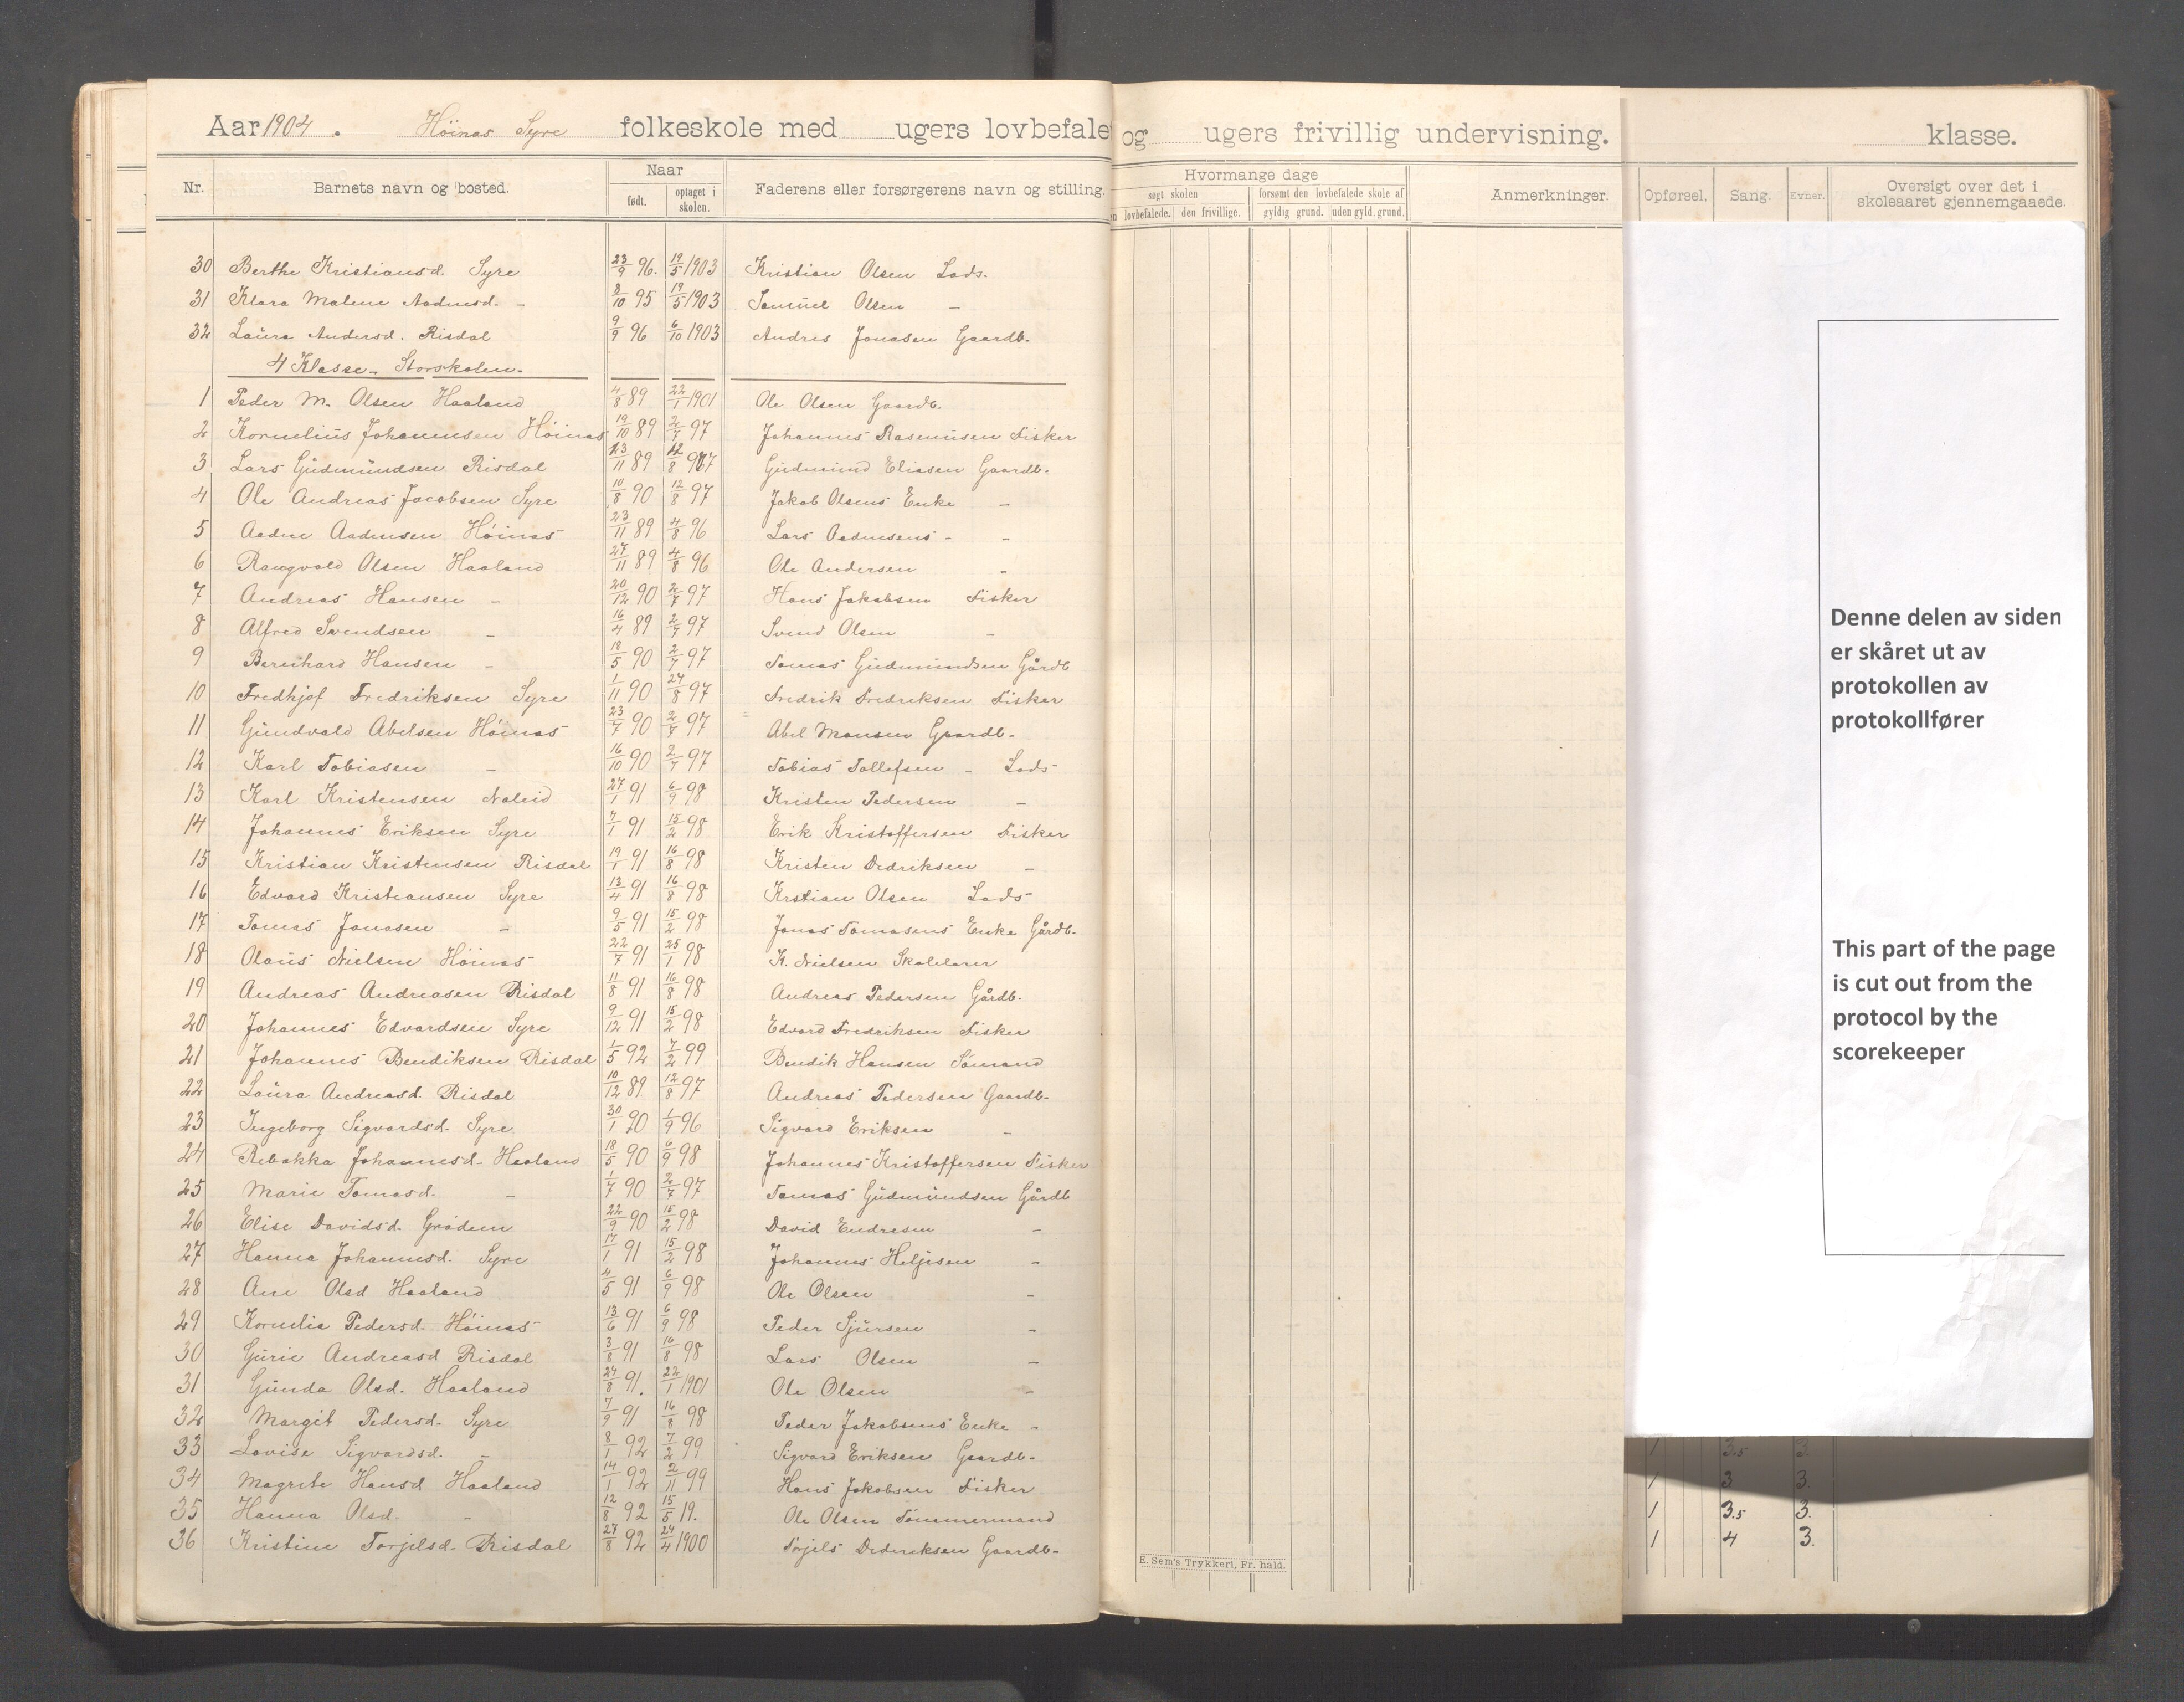 Aar 1904. Höinas Syre folkeskole med ugers lovbefale og ugers frivillig undervisning. klasse.
Nr. Barnets navn og bosted. Naar født. optaget i skolen. Faderens eller forsørgerens navn og stilling. Hvormange dage søgt skolen lovbefalede. den frivillige. forsømt den lovbefalede skole af gyldig grund. uden gyld. grund. Anmerkninger. Opførsel. Sang. Evner. Oversigt over det i skoleaaret gjennemgaaede.
30 Berthe Kristiansd. Syre 23/9 96. 19/5 1903 Kristian Olsen Lods.
31 Klara Malene Aadnesd. - 8/10 95 19/5 1903 Samuel Olsen -
32 Laura Andersd. Risdal 9/9 96 6/10 1903 Andres Jonasen Gaardb.
4 Klasse - Storskolen.
1 Peder M. Olsen Haaland 4/8 89 22/1 1901 Ole Olsen Gaardb.
2 Kornelius Johannesen Höinas 19/10 89 2/7 97 Johannes Rasmusen Fisker
3 Lars Gudmundsen Risdal 23/11 89 12/8 97 Gudmund Eliasen Gaardb.
4 Ole Andreas Jacobsen Syre 10/8 90 12/8 97 Jakob Olsens Enke -
5 Aadne Aadnesen Höinas 23/11 89 4/8 96 Lars Aadnesens - -
6 Rangvald Olsen Haaland 27/11 89 4/8 96 Ole Andersen -
7 Andreas Hansen - 20/12 90 2/7 97 Hans Jakobsen Fisker
8 Alfred Svendsen - 16/4 89 2/7 97 Svend Olsen -
9 Bernhard Hansen - 18/5 90 2/7 97 Tomas Gudmundsen Gårdb
10 Fredhjof Fredriksen Syre 1/11 90 24/8 97 Fredrik Fredriksen Fisker
11 Gundvald Abelsen Höinas 23/7 90 2/7 97 Abel Monsen Gaardb.
12 Karl Tobiasen - 16/10 90 2/7 97 Tobias Tollefsen - Lods
13 Karl Kristensen Naleid 27/1 91 6/9 98 Kristen Pedersen -
14 Johannes Eriksen Syre 7/1 91 15/2 98 Erik Kristoffersen Fisker
15 Kristian Kristensen Risdal 19/1 91 16/8 98 Kristen Dedriksen -
16 Edvard Kristiansen Syre 13/4 91 16/8 98 Krstian Olsen Lods
17 Tomas Jonasen - 9/5 91 15/2 98 Jonas Tomasens Enke Gårdb.
18 Olaus Nielsen Höinas 22/7 91 25/1 98 K. Nielsen Skolelærer
19 Andreas Andreasen Risdal 11/8 91 16/8 98 Andreas Pedersen Gårdb.
20 Johannes Edvardsen Syre 9/12 91 15/2 98 Edvard Fredriksen Fisker
21 Johannes Bendiksen Risdal 1/5 92 7/2 99 Bendik Hansen Sömand
22 Laura Andreasd. Risdal 10/12 89 12/8 97 Andreas Pedersen Gaardb.
23 Ingeborg Sigvardsd. Syre 30/1 90 1/9 96 Sigvard Eriksen -
24 Rebekka Johannesd. Haaland 18/5 90 6/9 98 Johannes Kristoffersen Fisker
25 Marie Tomasd. - 1/7 90 2/7 97 Tomas Gudmundsen Gårdb
26 Elise Davidsd. Grödem 22/9 90 15/2 98 David Endresen -
27 Hanna Johannesd. Syre 17/1 91 15/2 98 Johannes Helgesen -
28 Ane Olsd Haaland 4/5 91 6/9 98 Ole Olsen -
29 Kornelia Pedersd. Höinas 13/6 91 6/9 98 Peder Sjursen -
30 Gurie Andreasd Risdal 3/8 91 16/8 98 Lars Olsen -
31 Gunda Olsd. Haaland 24/8 91. 22/1 1901 Ole Olsen -
32 Margit Pedersd. Syre 7/9 91 16/8 98 Peder Jakobsens Enke -
33 Lovise Sigvardsd. - 8/1 92 7/2 99 Sigvard Eriksen Gaardb.
34 Magrete Hansd Haaland 14/1 92 2/11 99 Hans Jakobsen Fisker
35 Hanna Olsd. - 12/8 92 15/5 19. Ole Olsen Tömmermand
36 Kristine Torjilsd. Risdal 27/8 92 24/4 1900 Torjils Dedriksen Gaardb.
E. Sem's Trykkeri, Fr. hald.
Denne delen av siden
er skåret ut av
protokollen av
protokollfører
This part of the page
is cut out from the
protocol by the
scorekeeper
1 3.5 3.
1 3 3.
1 3.5 3.
1 4 3.